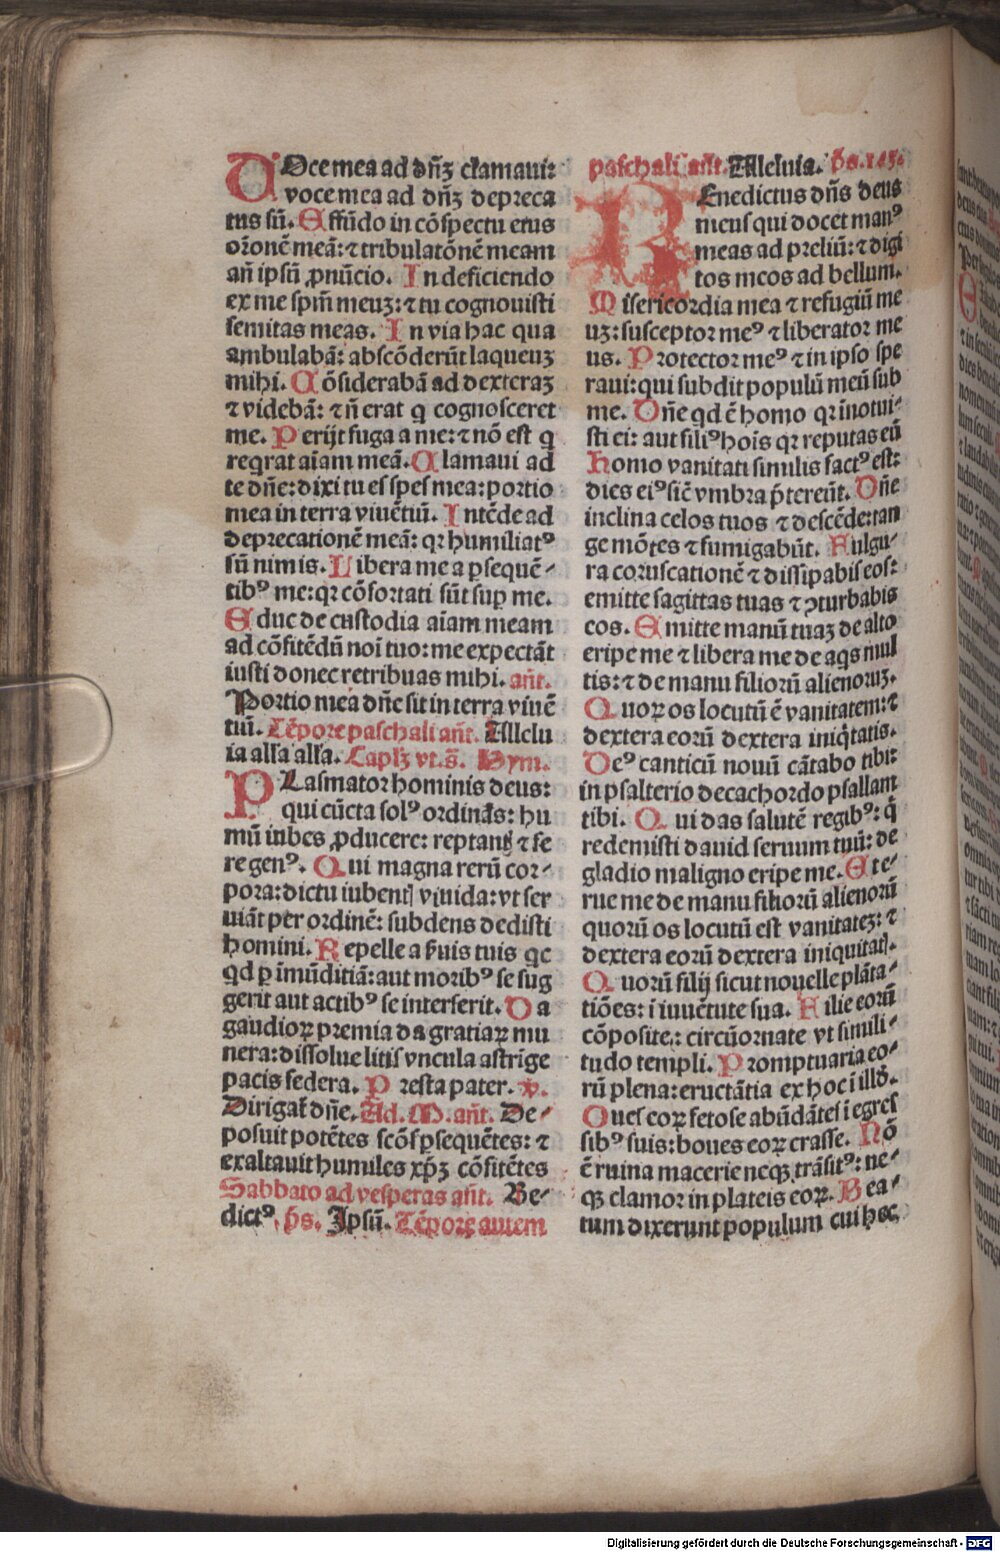 VOce mea ad dñꝫ clamaui:
voce mea ad dñꝫ depreca
tus sū. Effūdo in cōspectu eius
orōnē meā: ⁊ tribulatōnē meam
añ ipsū ꝓnūcio. In deficiendo
ex me spm̄ meuꝫ: ⁊ tu cognouisti
semitas meas. In via hac qua
ambulabā: abscōderūt laqueuꝫ
mihi. Cōsiderabā ad dexteraꝫ
⁊ videbā: ⁊ ñ erat q cognosceret
me. Perijt fuga a me: ⁊ nō est q
reqrat aīam meā. Clamaui ad
te dñe: dixi tu es spes mea: portio
mea in terra viuētiū. Intēde ad
deprecationē meā: qꝛ humiliatꝰ
sū nimis. Libera me a ꝑsequē-
tibꝰ me: qꝛ cōfortati sūt suꝑ me.
Educ de custodia aīam meam
ad cōfitēdū noī tuo: me expectāt
iusti donec retribuas mihi. añt.
Portio mea dñe sit in terra viuē
tiū. Tēpore paschali añt. Allelu
ia alla alla. Caplꝫ vt.s̄. Hym.
PLasmator hominis deus:
qui cūcta solꝰ ordinās: hu
mū iubes ꝓducere: reptantꝭ ⁊ fe
re genꝰ. Qui magna rerū cor-
pora: dictu iubentꝭ viuida: vt ser
uiāt per ordinē: subdens dedisti
homini. Repelle a ẜuis tuis qc
qd ꝑ īmūditiā: aut moribꝰ se sug
gerit aut actibꝰ se interserit. Da
gaudioꝝ premia da gratiaꝝ mu
nera: dissolue litis vncula astrīge
pacis federa. Presta pater. v̄.
Dirigat̄ dñe. Ad. M. añt. De-
posuit potētes scōs ꝑsequētes: ⁊
exaltauit humiles xp̄ꝫ cōfitētes
Sabbato ad vesperas añt. Be-
dictꝰ. p̄s. Ipsū. Tēpore autem
paschali añt. Alleluia. p̄s. 143.
BEnedictus dñs deus
meus qui docet manꝰ
meas ad preliū: ⁊ digi
tos meos ad bellum.
Misericordia mea ⁊ refugiū me
uꝫ: susceptor meꝰ ⁊ liberator me
us. Protector meꝰ ⁊ in ipso spe
raui: qui subdit populū meū sub
me. Dñe qd ē homo qꝛ īnotui-
sti ei: aut filiꝰ hoīs qꝛ reputas eū
Homo vanitati similis factꝰ est:
dies eiꝰ sic̄ vmbra p̄tereūt. Dñe
inclina celos tuos ⁊ descēde: tan
ge mōtes ⁊ fumigabūt. Fulgu-
ra coruscationē ⁊ dissipabis eos:
emitte sagittas tuas ⁊ ꝯturbabis
eos. Emitte manū tuaꝫ de alto
eripe me ⁊ libera me de aqs mul
tis: ⁊ de manu filiorū alienoruꝫ.
Quoꝝ os locutū ē vanitatem: ⁊
dextera eorū dextera iniqtatis.
Deꝰ canticū nouū cātabo tibi:
in psalterio decachordo psallam
tibi. Qui das salutē regibꝰ: q̄
redemisti dauid seruum tuū: de
gladio maligno eripe me. Et e-
rue me de manu filiorū alienorū
quorū os locutū est vanitateꝫ: ⁊
dextera eorū dextera iniquitatꝭ.
Quorū filij sicut nouelle plāta-
tiōes: ī iuuētute sua. Filie eorū
cōposite: circūornate vt simili-
tudo templi. Promptuaria eo-
rū plena: eructātia ex hoc ī illḋ.
Oues eoꝝ fetose abūdātes ī egres
sibꝰ suis: boues eoꝝ crasse. Nō
ē ruina macerie neqꝫ trāsitꝰ: ne-
qꝫ clamor in plateis eoꝝ. Bea-
tum dixerunt populum cui hec
Digitalisierung gefördert durch die Deutsche Forschungsgemeinschaft - DFG